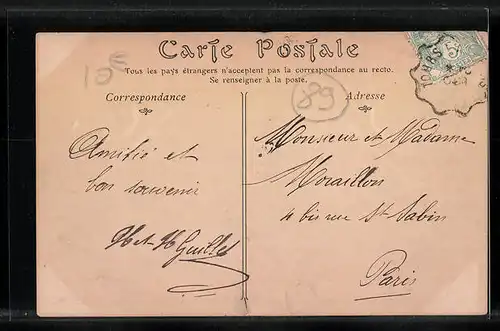 Carte Postale
Tous les pays étrangers n'acceptent pas la correspondance au recto.
Se renseigner à la poste.
Correspondance
Adresse
10c
89
5
TOURS
Amitié et
bon souvenir
H et H Guillet
Monsieur et Madame
Moraillon
4 bis rue St Sabin
Paris